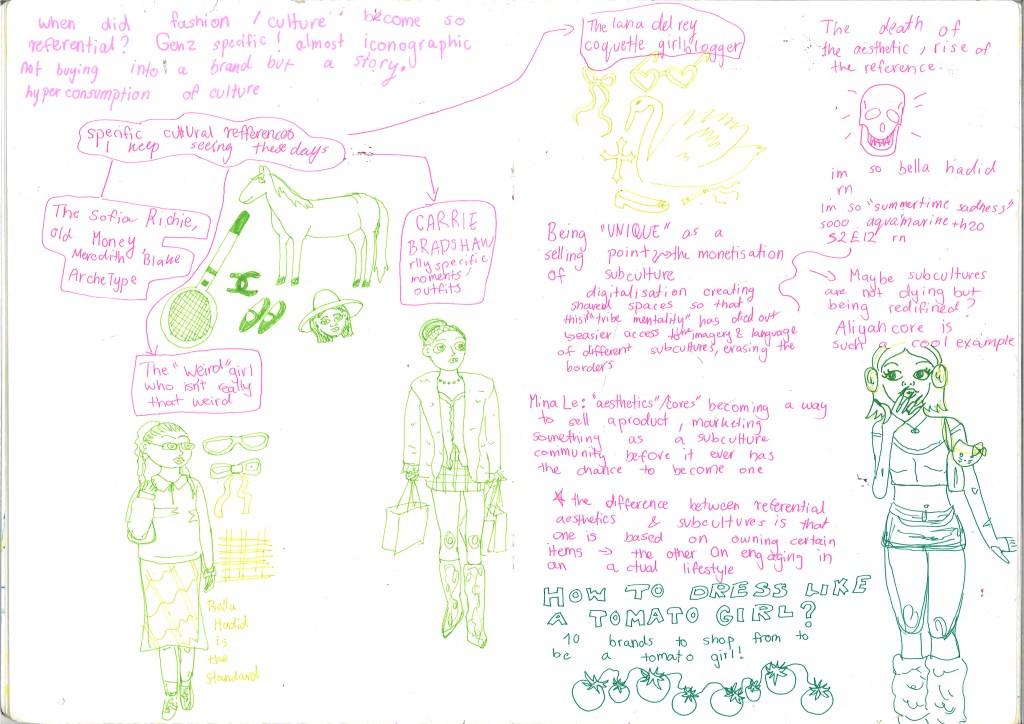 when did fashion / culture become so
referential? Gen z specific! almost iconographic
not buying into a brand but a story.
hyper consumption of culture
specific cultural refferences
I keep seeing these days
The Sofia Richie,
old Money,
Meredith Blake
ArcheType
CARRIE
BRADSHAW
rlly specific
moments/
outfits
The "Weird" girl
who isn't really
that weird
Bella
Hadid
is
the
standard
The lana del rey
coquette girl blogger
Being "UNIQUE" as a
selling point → the monetisation
of subculture
digitalisation creating
shared spaces so that
this "tribe mentality" has died out
easier access to the imagery & language
of different subcultures, erasing the
borders
Mina Le: "aesthetics"/"cores" becoming a way
to sell a product, marketing
something as a subculture
community before it ever has
the chance to become one
* the difference between referential
aesthetics & subcultures is that
one is based on owning certain
items → the other on engaging in
an actual lifestyle
HOW TO DRESS LIKE
A TOMATO GIRL?
10 brands to shop from to
be a tomato girl!
The death of
the aesthetic, rise of
the reference.
im so bella hadid
rn
Im so "summertime sadness"
sooo aquamarine + h20
S2E12 rn
→ Maybe subcultures
are not dying but
being redifined?
Aliyahcore is
such a cool example